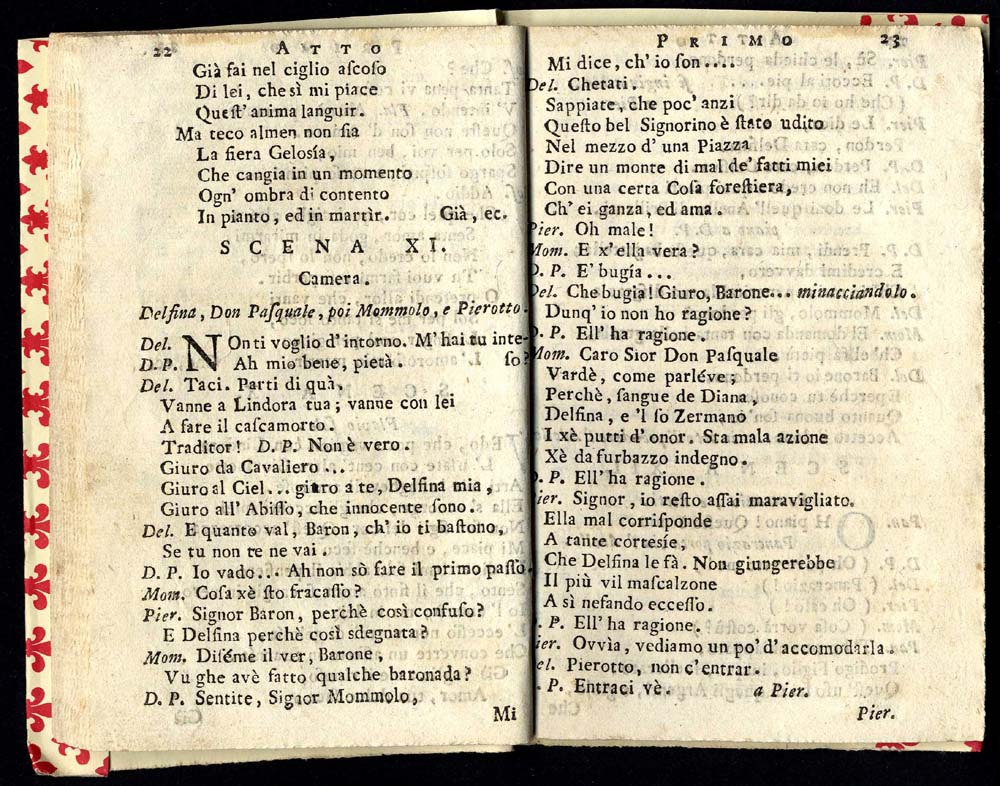 22 ATTO
Già fai nel ciglio aſcoſo
Di lei, che sì mi piace
Queſt' anima languir.
Ma teco almen non ſia
La fiera Geloſía,
Che cangia in un momento
Ogn' ombra di contento
In pianto, ed in martìr. Già, ec.
SCENA XI.
Camera.
Delfina, Don Paſquale, poi Mommolo, e Pierotto.
Del. NOn ti voglio d' intorno. M' hai tu inte-
D.P. Ah mio bene, pietà. ſo?
Del. Taci. Parti di quà,
Vanne a Lindora tua; vanne con lei
A fare il caſcamorto.
Traditor! D. P. Non è vero.
Giuro da Cavaliero...
Giuro al Ciel... giuro a te, Delfina mia,
Giuro all' Abiſſo, che innocente ſono.
Del. E quanto val, Baron, ch' io ti baſtono,
Se tu non te ne vai.
D. P. Io vado... Ah non sò fare il primo paſſo.
Mom. Coſa xè ſto fracaſſo?
Pier. Signor Baron, perchè così confuſo?
E Delfina perchè così sdegnata?
Mom. Diſéme il ver, Barone,
Vu ghe avè fatto qualche baronada?
D. P. Sentite, Signor Mommolo,
Mi
PRIMO 23
Mi dice, ch' io ſon....
Del. Chetati.
Sappiate, che poc' anzi
Queſto bel Signorino è ſtato udito
Nel mezzo d' una Piazza
Dire un monte di mal de' fatti miei
Con una certa Coſa foreſtiera,
Ch' ei ganza, ed ama.
Pier. Oh male!
Mom. E x' ella vera?
D. P. E' bugía...
Del. Che bugia! Giuro, Barone... minacciandolo.
Dunq' io non ho ragione?
D. P. Ell' ha ragione.
Mom. Caro Sior Don Paſquale
Vardè, come parléve;
Perchè, ſangue de Diana,
Delfina, e 'l ſo Zermano
I xè putti d' onor. Sta mala azione
Xè da furbazzo indegno.
D. P. Ell' ha ragione.
Pier. Signor, io reſto aſſai maravigliato.
Ella mal corriſponde
A tante corteſíe,
Che Delfina le fà. Non giungerebbe
Il più vil maſcalzone
A sì nefando ecceſſo.
. P. Ell' ha ragione.
ier. Ovvìa, vediamo un po' d' accomodarla.
el. Pierotto, non c' entrar.
. P. Entraci vè. a Pier.
Pier.